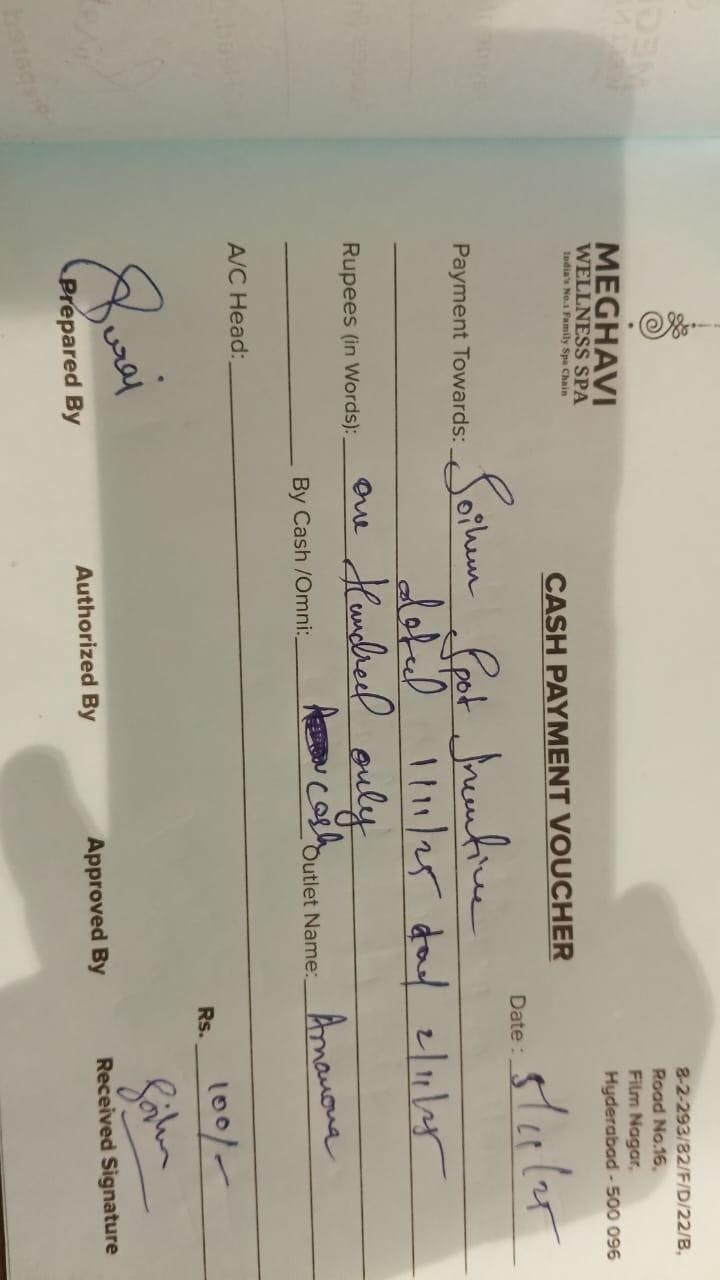 MEGHAVI
WELLNESS SPA
India's No.1 Family Spa Chain
8-2-293/82/F/D/22/B,
Road No.16,
Film Nagar,
Hyderabad - 500 096
CASH PAYMENT VOUCHER
Date : 5/11/25
Payment Towards: Soihun Spot Incentive
dated 1/11/25 2/11/25
Rupees (in Words): one Hundred only
By Cash /Omni: cash Outlet Name: Amanora
A/C Head:
Rs. 100/-
Prepared By Authorized By Approved By Received Signature